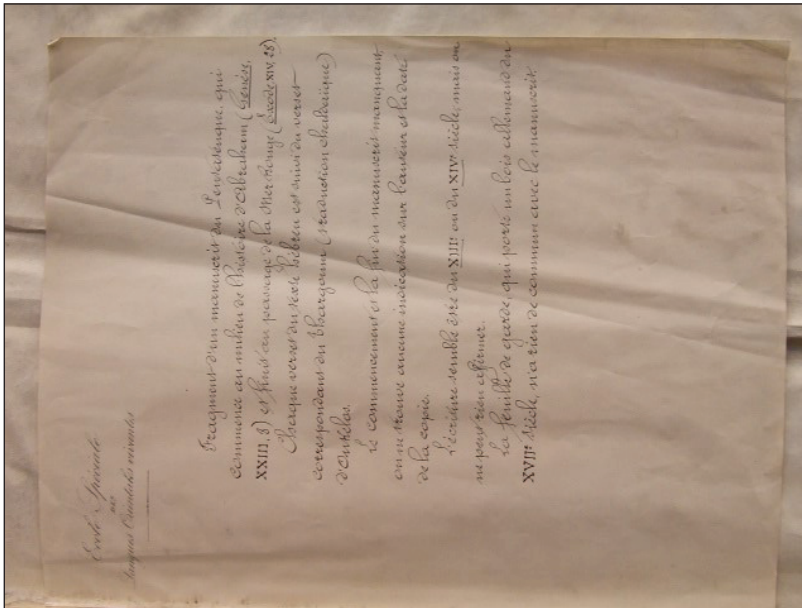 École Spéciale
des
Langues Orientales vivantes
Fragment d'un manuscrit du Pentateuque, qui
commence au milieu de l'histoire d'Abraham (Genèse,
XXIII, 8) et finit au passage de la Mer Rouge (Exode XIV, 28).
Chaque verset du texte hébreu est suivi du verset
correspondant du Thargoum (traduction chaldaïque)
d'Onkélos.
Le commencement et la fin du manuscrit manquant,
on ne trouve aucune indication sur l'auteur et la date
de la copie.
L'écriture semble être du XIIIe ou du XIVe siècle, mais on
ne peut rien affirmer.
La feuille de garde, qui porte un bois allemand du
XVIIe siècle, n'a rien de commun avec le manuscrit.